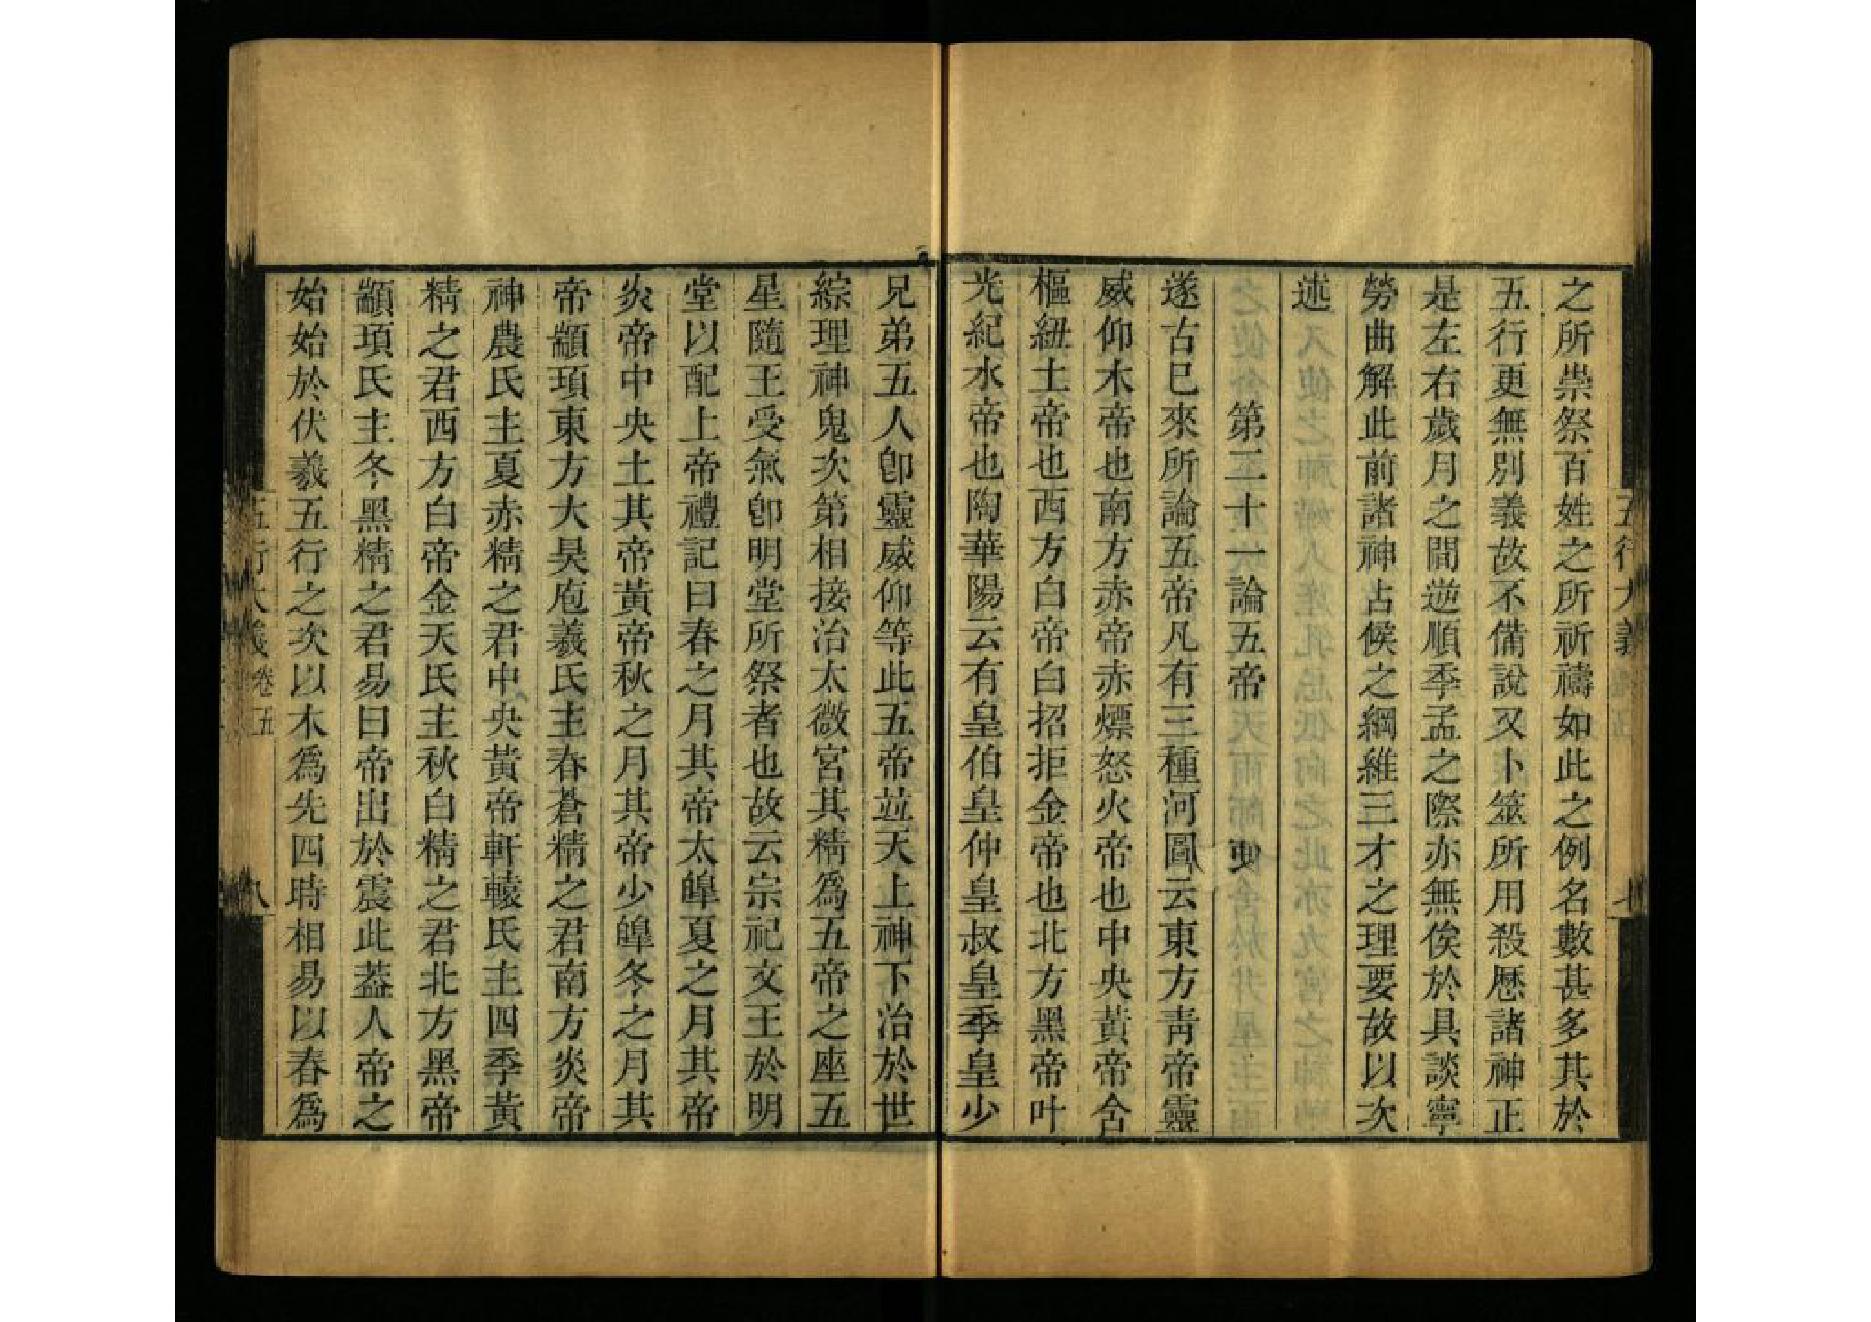 之所崇祭百姓之所祈禱如此之例名數甚多其於
五行更無別義故不備說又卜筮所用殺歷諸神正
是左右歲月之間逆順季孟之際亦無俟於具談寧
勞曲解此前諸神占候之綱維三才之理要故以次
述
第二十一論五帝
遂古已來所論五帝凡有三種河圖云東方靑帝靈
威仰木帝也南方赤帝赤熛怒火帝也中央黃帝含
樞紐土帝也西方白帝白招拒金帝也北方黑帝叶
光紀水帝也陶華陽云有皇伯皇仲皇叔皇季皇少
兄弟五人卽靈威仰等此五帝竝天上神下治於世
綜理神鬼次第相接治太微宮其精爲五帝之座五
星隨王受氣卽明堂所祭者也故云宗祀文王於明
堂以配上帝禮記曰春之月其帝太皞夏之月其帝
炎帝中央土其帝黃帝秋之月其帝少皞冬之月其
帝顓頊東方大昊庖羲氏主春蒼精之君南方炎帝
神農氏主夏赤精之君中央黃帝軒轅氏主四季黃
精之君西方白帝金天氏主秋白精之君北方黑帝
顓頊氏主冬黑精之君易曰帝出於震此蓋人帝之
始始於伏羲五行之次以木爲先四時相易以春爲
五行大義 卷五 八